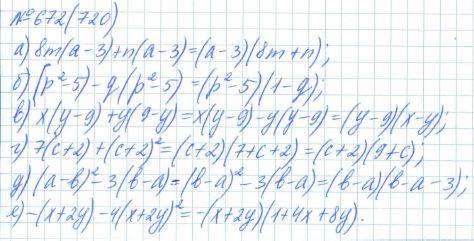 №672(720)
а) 8m(a-3)+n(a-3)=(a-3)(8m+n);
б) (p²-5)-q(p²-5)=(p²-5)(1-q);
в) x(y-9)+y(9-y)=x(y-9)-y(y-9)=(y-9)(x-y);
г) 7(c+2)+(c+2)²=(c+2)(7+c+2)=(c+2)(9+c);
д) (a-b)²-3(b-a)=(b-a)²-3(b-a)=(b-a)(b-a-3);
е) -(x+2y)-4(x+2y)²=-(x+2y)(1+4x+8y).